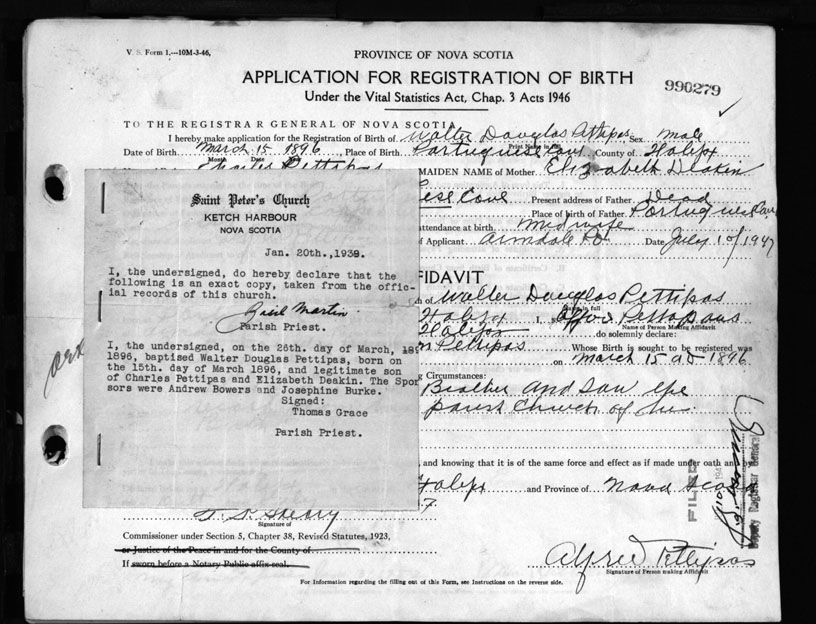 V. S. Form 1.—10M-3-46.
PROVINCE OF NOVA SCOTIA
APPLICATION FOR REGISTRATION OF BIRTH
990279
Under the Vital Statistics Act, Chap. 3 Acts 1946
TO THE REGISTRAR GENERAL OF NOVA SCOTIA
I hereby make application for the Registration of Birth of Walter Douglas Pettipas Sex male
Print Name in full
Date of Birth March 15 1896 Place of Birth Portuguese Cove County of Halifx
Month Date
Charles Pettipas MAIDEN NAME of Mother Elizabeth Deakin
ese Cove Present address of Father Dead
Place of birth of Father Portuguese Cove
attendance at birth midwife
of Applicant Armdale P.O. Date July 10/1947
Saint Peter's Church
KETCH HARBOUR
NOVA SCOTIA
Jan. 20th.,1939.
I, the undersigned, do hereby declare that the
following is an exact copy, taken from the offic-
ial records of this church.
Basil Martin
Parish Priest.
I, the undersigned, on the 26th. day of March, 189
1896, baptised Walter Douglas Pettipas, born on
the 15th. day of March 1896, and legitimate son
of Charles Pettipas and Elizabeth Deakin. The Spon
sors were Andrew Bowers and Josephine Burke.
Signed:
Thomas Grace
Parish Priest.
FIDAVIT
th of Walter Douglas Pettipas
in full
Halifx I,
Name of Person Making Affidavit
Halifax do solemnly declare:
Pettipas Whose Birth is sought to be registered was
on March 15 AD 1896
g Circumstances:
Brother and saw
parish Church of
, and knowing that it is of the same force and effect as if made under oath and by
Halifx and Province of Nova Scotia
7.
FILED
Deputy Registrar General
Signature of
Commissioner under Section 5, Chapter 38, Revised Statutes, 1923,
or Justice of the Peace in and for the County of
If sworn before a Notary Public affix seal.
Alfred Pettipas
Signature of Person making Affidavit
For Information regarding the filling out of this Form, see Instructions on the reverse side.